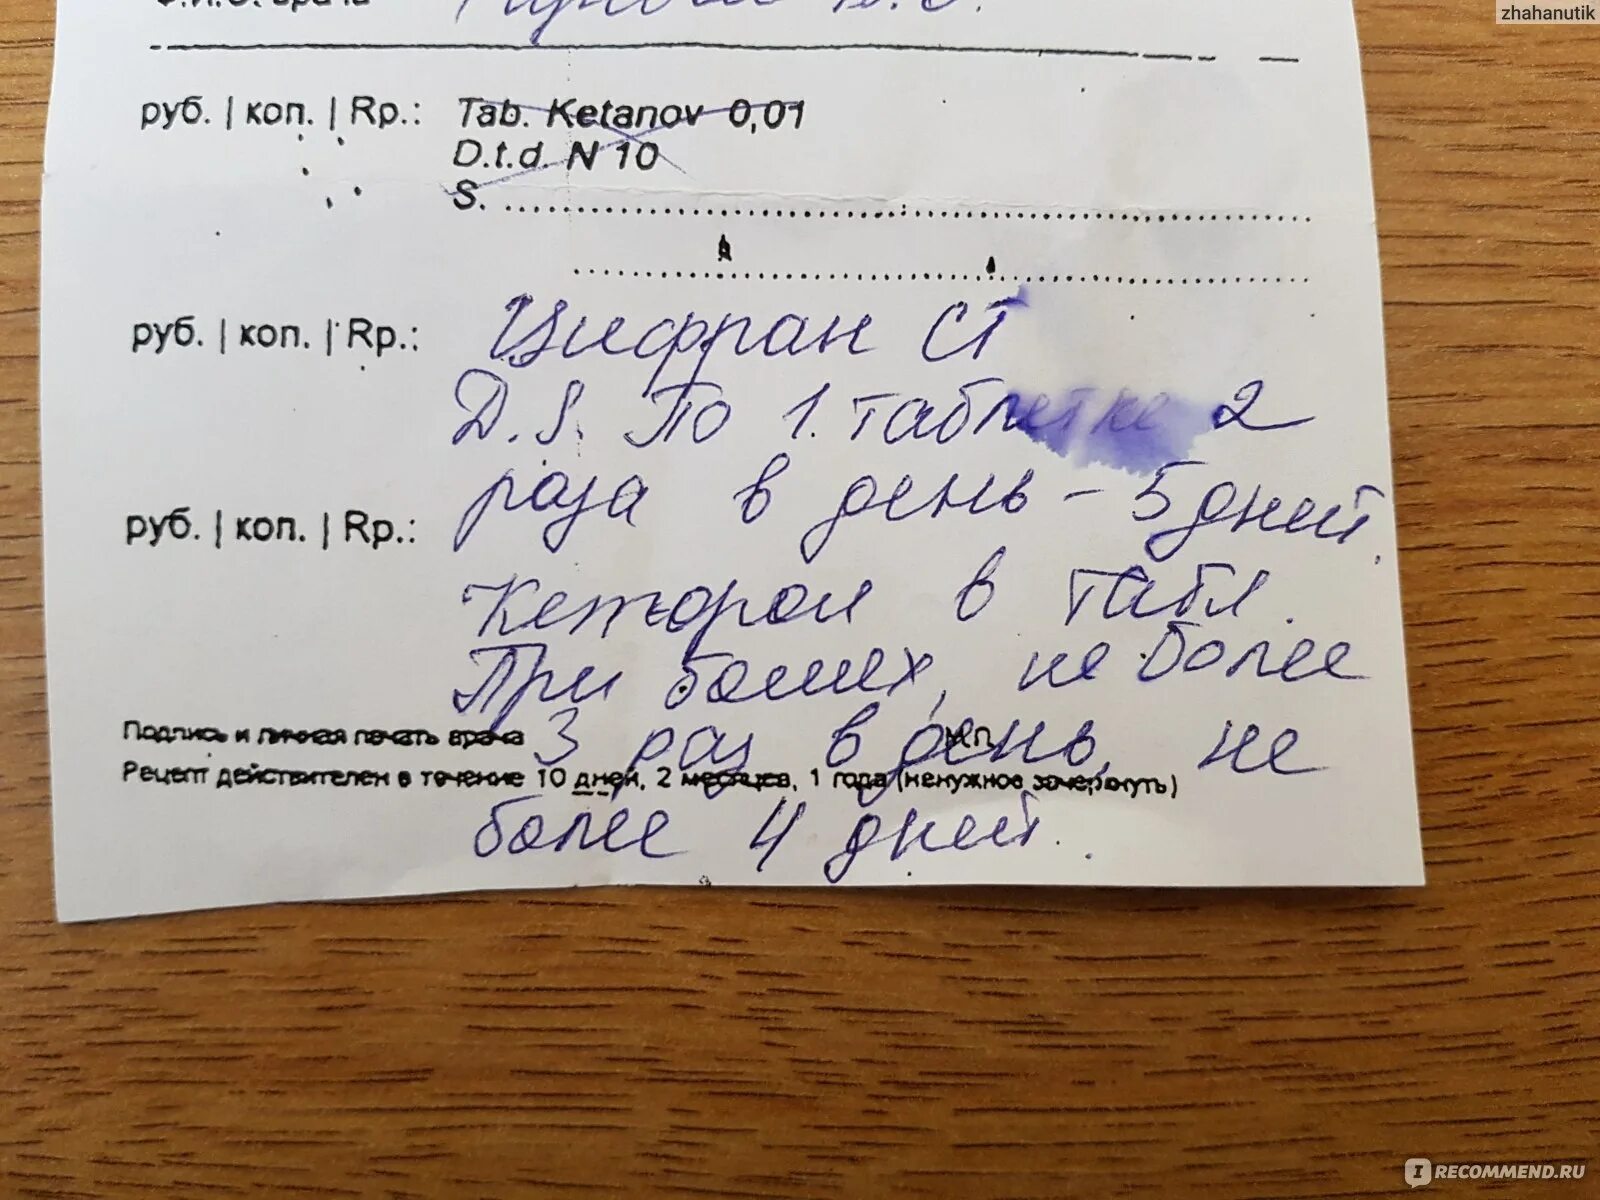 zhahanutik
Ф.И.О. врача
руб. | коп. | Rp.: Tab. Ketanov 0,01
D.t.d. N 10
S.
руб. | коп. | Rp.: Цифран СТ
D.S. По 1 таблетке 2
раза в день – 5 дней.
руб. | коп. | Rp.:
Кеторол в табл.
При болях, не более
Подпись и личная печать врача 3 раз в день, не
М.П.
Рецепт действителен в течение 10 дней, 2 месяцев, 1 года (ненужное зачеркнуть)
более 4 дней.
IRECOMMEND.RU